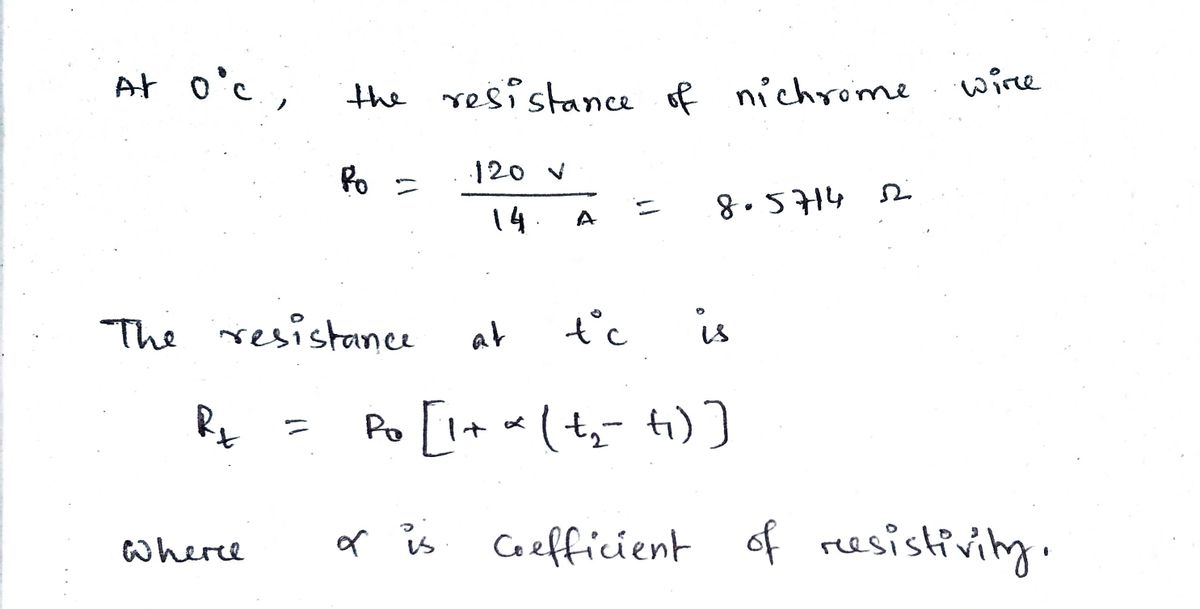 At 0°C, the resistance of nichrome wire
R0 = 120 V / 14 A = 8.5714 Ω
The resistance at t°C is
Rt = R0 [1 + α (t2 - t1)]
where α is Coefficient of resistivity.